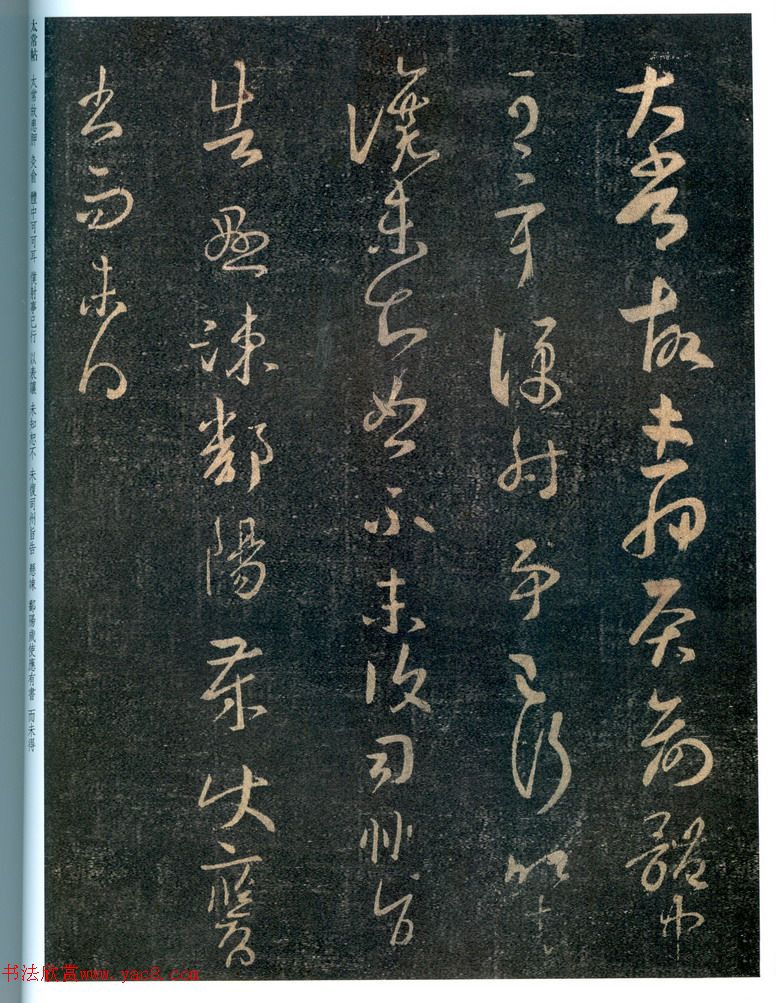 大常故患胛灸俞體中
可可耳僕射事已行以表
讓未知恕不未復司州旨
告懸竦鄱陽歲使應有
書而未得
太常帖 大常故患胛 灸俞 體中可可耳 僕射事已行 以表讓 未知恕不 未復司州旨告 懸竦 鄱陽歲使應有書 而未得
书法欣赏www.yac8.com